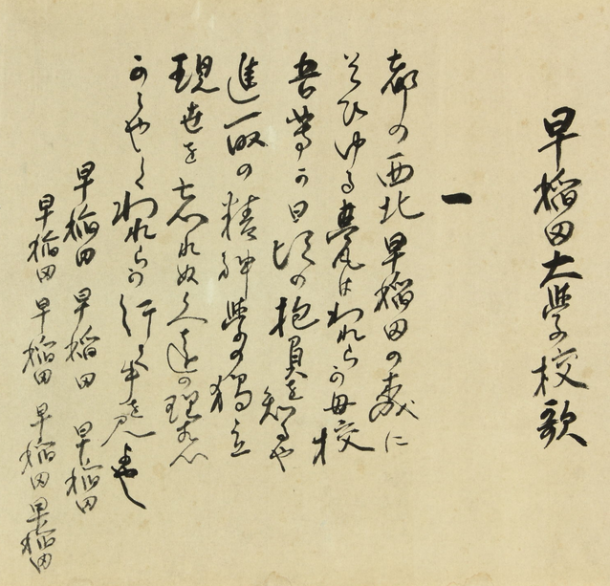 早稲田大学校歌
一
都の西北早稲田の森に
そびゆる甍はわれらが母校
吾等が日頃の抱負を知るや
進取の精神学の独立
現世を忘れぬ久遠の理想
かゞやくわれらが行手を見よや
早稲田 早稲田 早稲田
早稲田 早稲田 早稲田 早稲田